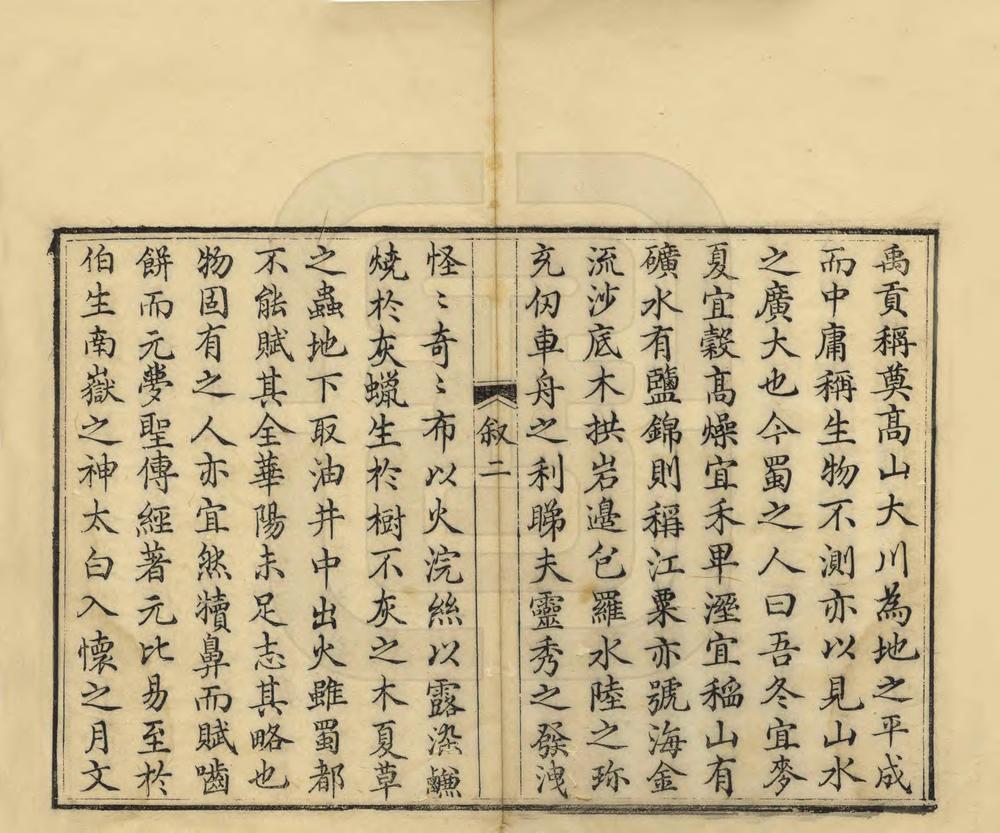 禹貢稱奠高山大川為地之平成
而中庸稱生物不測亦以見山水
之廣大也今蜀之人曰吾冬宜麥
夏宜穀高燥宜禾卑溼宜稻山有
礦水有鹽錦則稱江粟亦號海金
流沙底木拱岩邊包羅水陸之珎
充仞車舟之利睇夫靈秀之發洩
叙二
怪〻奇〻布以火浣絲以露染
燒於灰蠟生於樹不灰之木夏草
之蟲地下取油井中出火雖蜀都
不能賦其全華陽未足志其略也
物固有之人亦宜然犢鼻而賦嚙
餅而元夢聖傳經著元比易至於
伯生南嶽之神太白入懷之月文